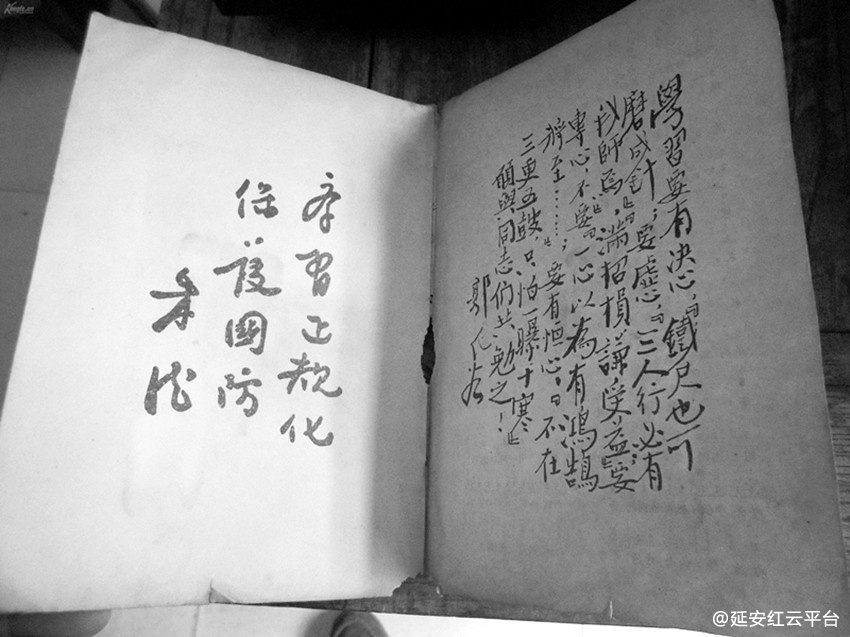 學習要有决心,『鐵尺也可
磨成針』;要虛心,『三人行必有
我師焉,滿招損謙受益』;要
專心,不要『一心以為有鴻鵠
將至……』;要有恒心,『不在
三更五鼓,只怕一曝十寒』
願與同志們共勉之!
郭化若
学習正規化
保護國防
朱德
@延安红云平台